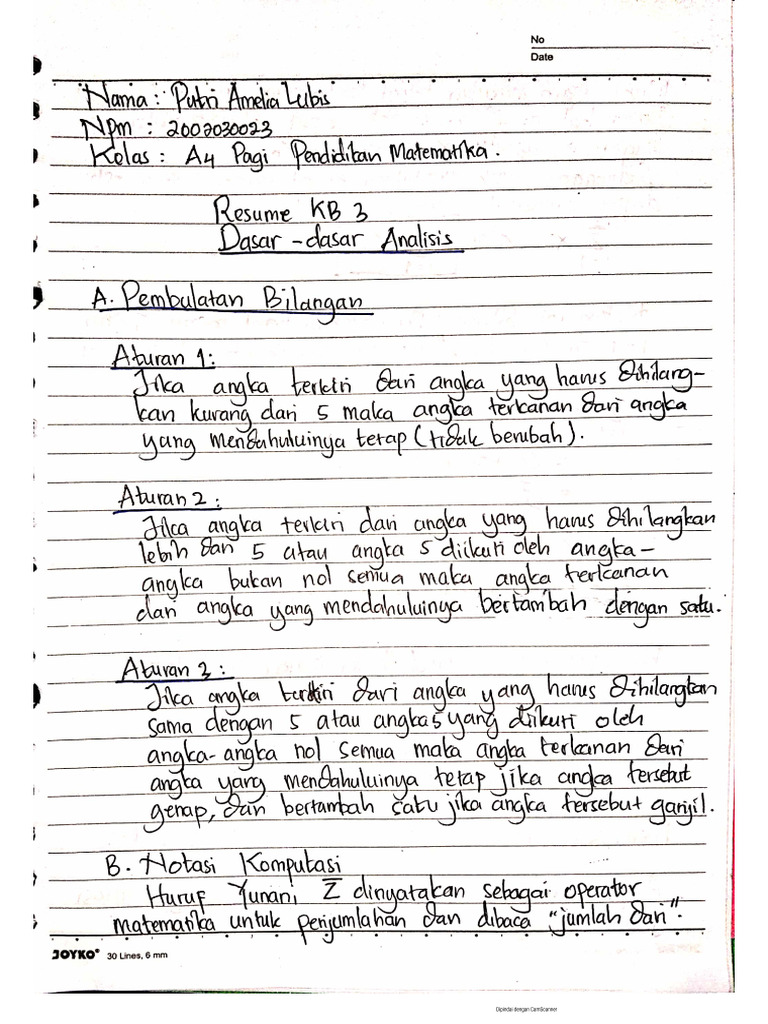 No
Date
Nama : Putri Amelia Lubis
Npm : 2002030023
Kelas : A4 Pagi Pendidikan Matematika.
Resume KB 3
Dasar - dasar Analisis
A. Pembulatan Bilangan
Aturan 1:
Jika angka terkiri dari angka yang harus dihilang-
kan kurang dari 5 maka angka terkanan dari angka
yang mendahuluinya tetap (tidak berubah).
Aturan 2 :
Jika angka terkiri dari angka yang harus dihilangkan
lebih dari 5 atau angka 5 diikuti oleh angka-
angka bukan nol semua maka angka terkanan
dari angka yang mendahuluinya bertambah dengan satu.
Aturan 3 :
Jika angka terkiri dari angka yang harus dihilangkan
sama dengan 5 atau angka 5 yang diikuti oleh
angka-angka nol semua maka angka terkanan dari
angka yang mendahuluinya tetap jika angka tersebut
genap, dan bertambah satu jika angka tersebut ganjil.
B. Notasi Komputasi
Huruf Yunani, Σ dinyatakan sebagai operator
matematika untuk perijumlahan dan dibaca "jumlah dari".
JOYKO® 30 Lines, 6 mm
Dipindai dengan CamScanner